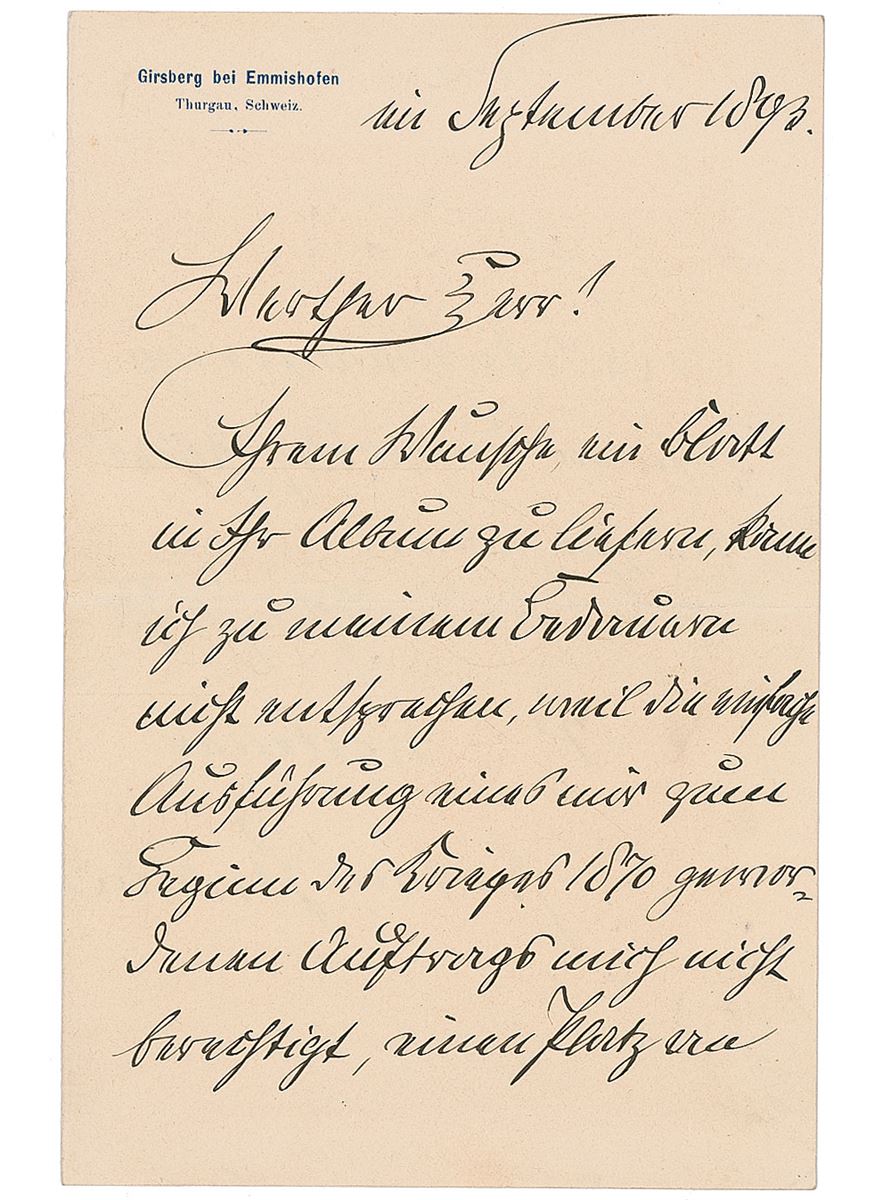 Girsberg bei Emmishofen
Thurgau, Schweiz.
im September 1893.
Werther Herr!
Ihrem Wunsche, ein Blatt
in Ihr Album zu liefern, kann
ich zu meinem Bedauern
nicht entsprechen, weil die einfache
Ausführung eines mir zum
Beginn des Krieges 1870 gewor-
denen Auftrags mich nicht
berechtigt, einen Platz an